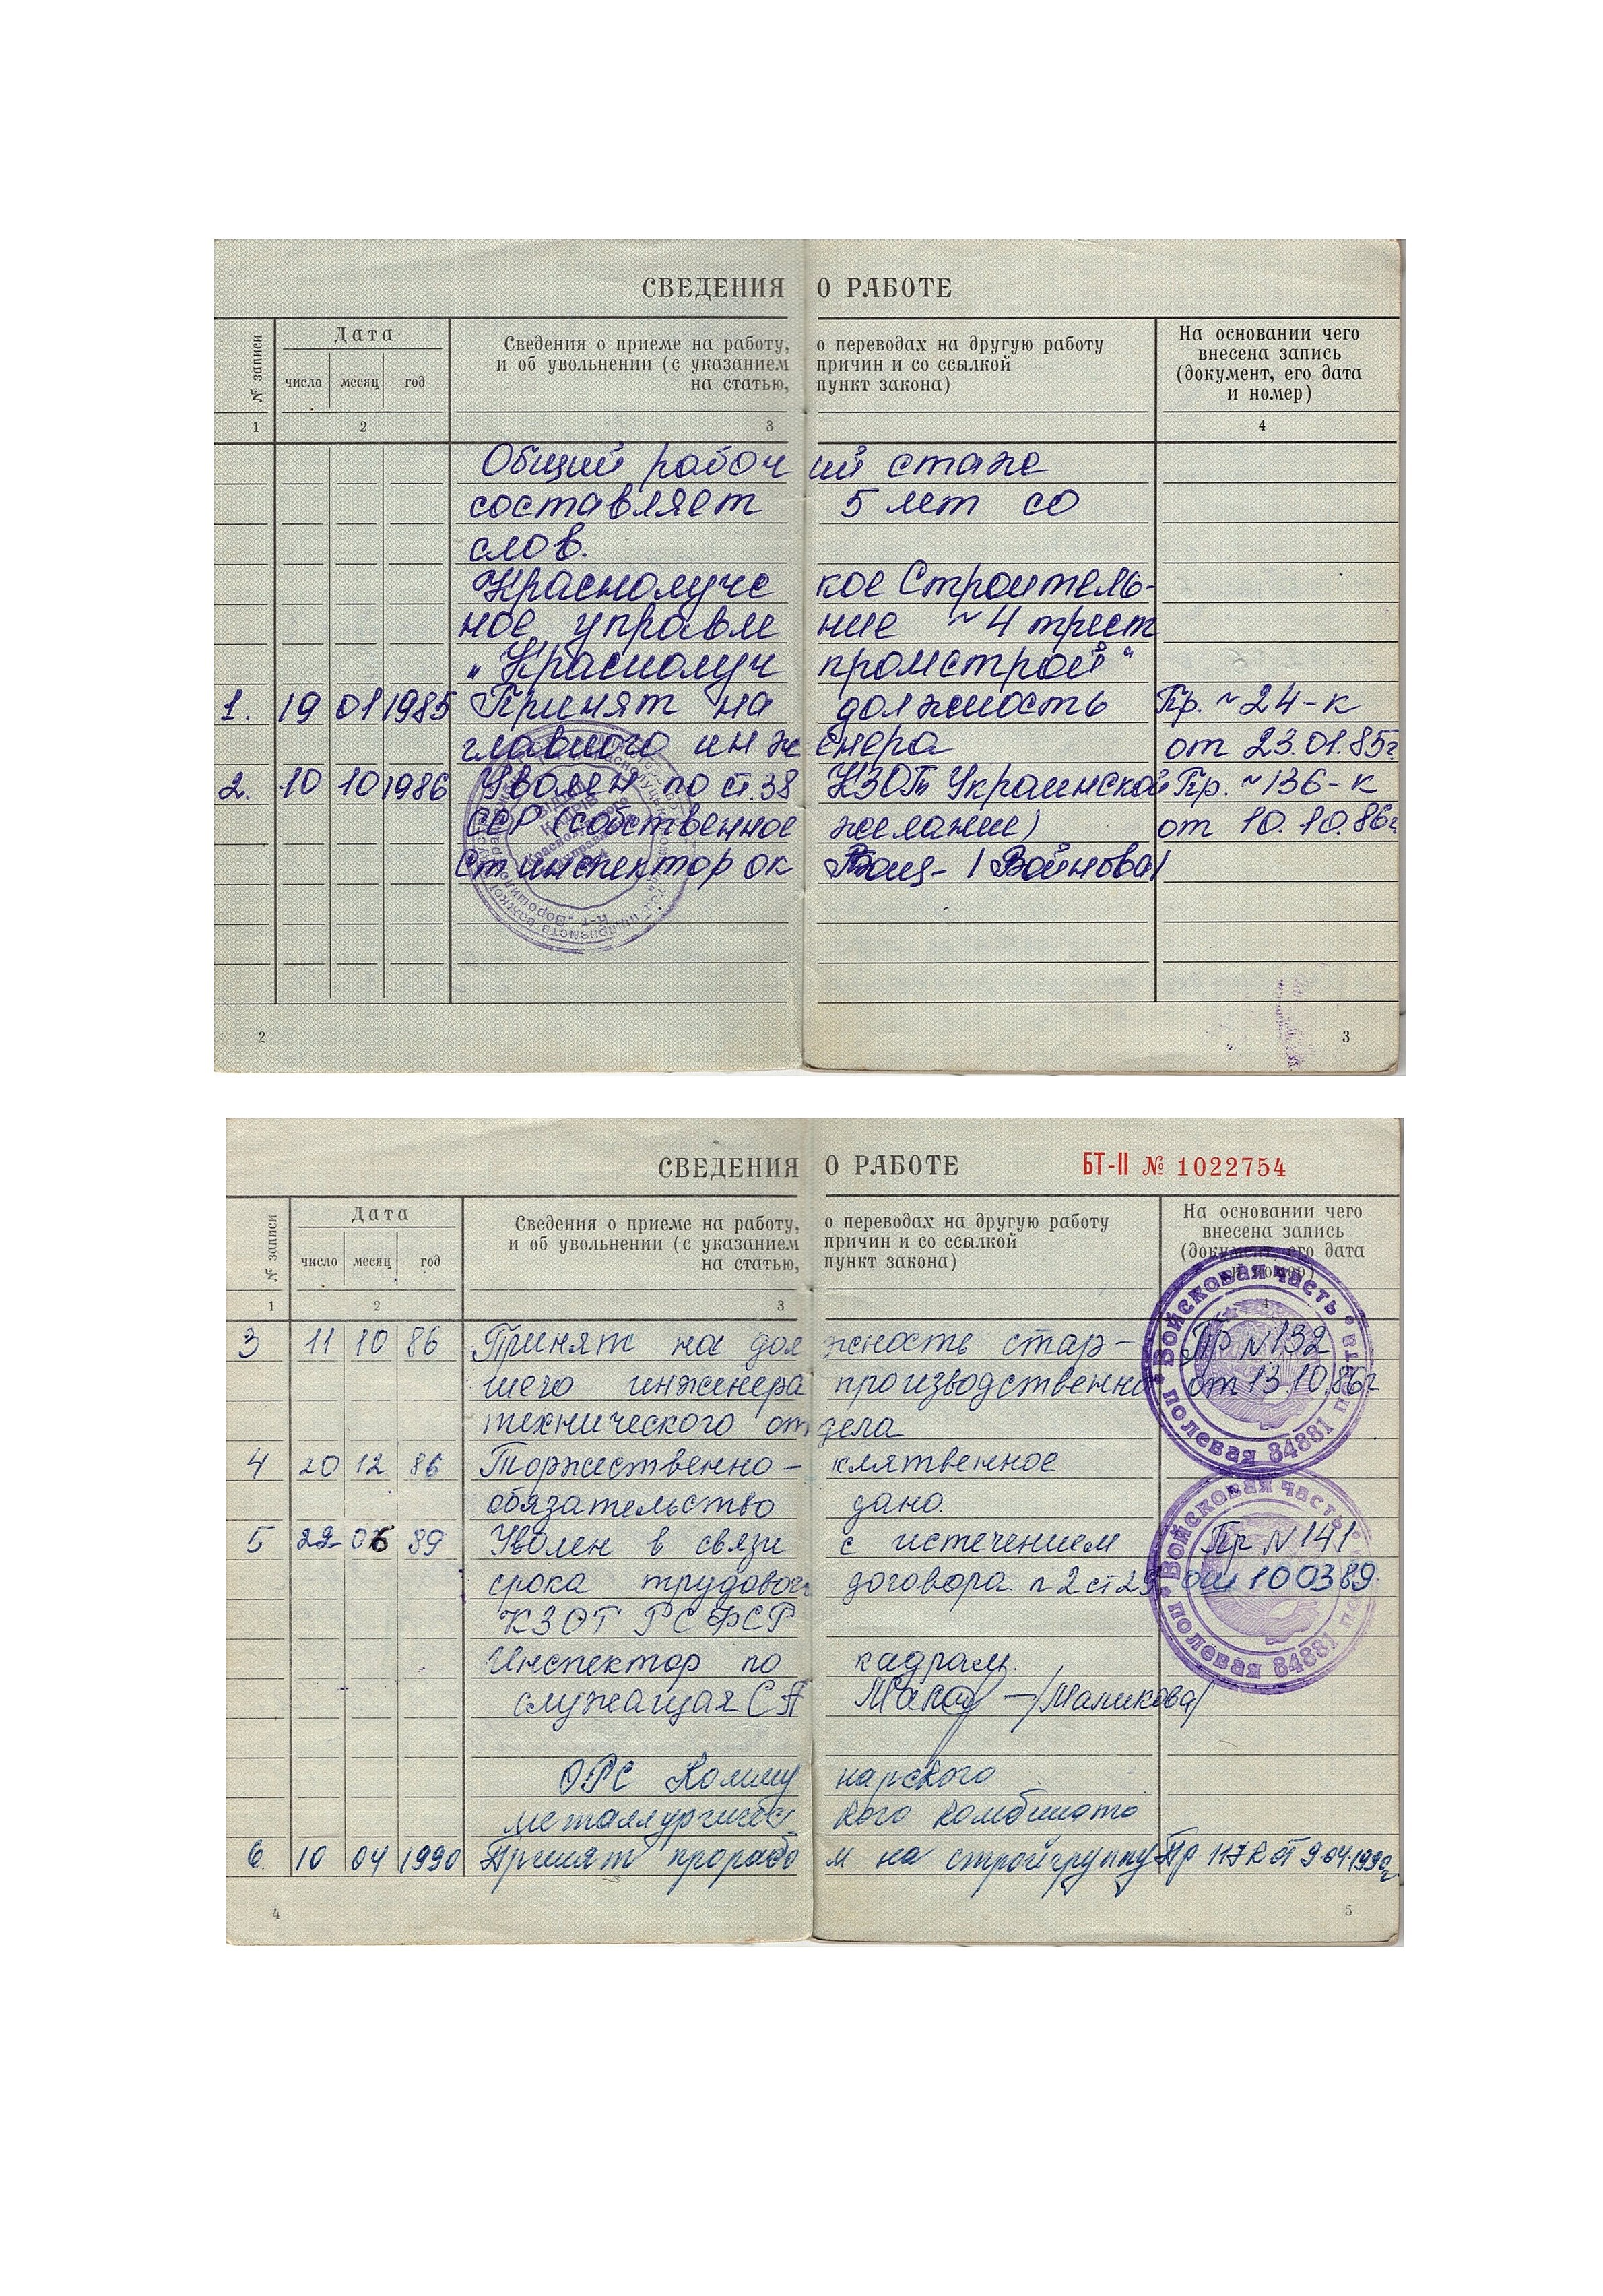 СВЕДЕНИЯ О РАБОТЕ
№ записи
Дата
число месяц год
Сведения о приеме на работу, о переводах на другую работу
и об увольнении (с указанием причин и со ссылкой
на статью, пункт закона)
На основании чего
внесена запись
(документ, его дата
и номер)
1 2 3 4
Общий рабочий стаж
составляет 5 лет со
слов.
Краснолучское Строитель-
ное управление ~ 4 трест
„Краснолуч промстрой“
1. 19 01 1985 Принят на должность Пр. ~ 24-к
главного инженера от 23.01.85г
2. 10 10 1986 Уволен по ст. 38 КЗОТ Украинской Пр. ~ 136-к
ССР (собственное желание) от 10.10.86г
Ст инспектор ок (Войнова)
2 3
СВЕДЕНИЯ О РАБОТЕ БТ-II № 1022754
№ записи
Дата
число месяц год
Сведения о приеме на работу, о переводах на другую работу
и об увольнении (с указанием причин и со ссылкой
на статью, пункт закона)
На основании чего
внесена запись
(документ, его дата
и номер)
1 2 3 4
3 11 10 86 Принят на должность стар- Пр N 132
шего инженера производственно от 13 10.86г
технического отдела
4 20 12 86 Торжественно- клятвенное
обязательство дано.
5 22 06 89 Уволен в связи с истечением Пр N 141
срока трудового договора п 2 ст 29 от 10 03 89
КЗОТ РСФСР
Инспектор по кадрам.
служащая СА /Маликова/
Войсковая часть полевая почта 84881
Войсковая часть полевая почта 84881
ОРС Коммунарского
металлургического комбината
6. 10 04 1990 Принят прорабом на стройгруппу Пр 117к от 9.04.1990г
4 5